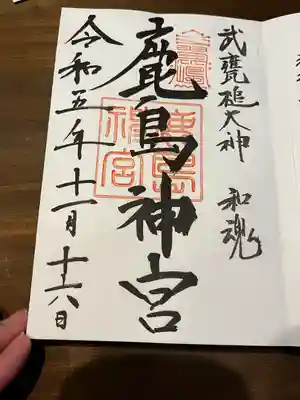 武甕槌大神 和魂
鹿島神宮
鹿島神宮
令和五年十一月十六日